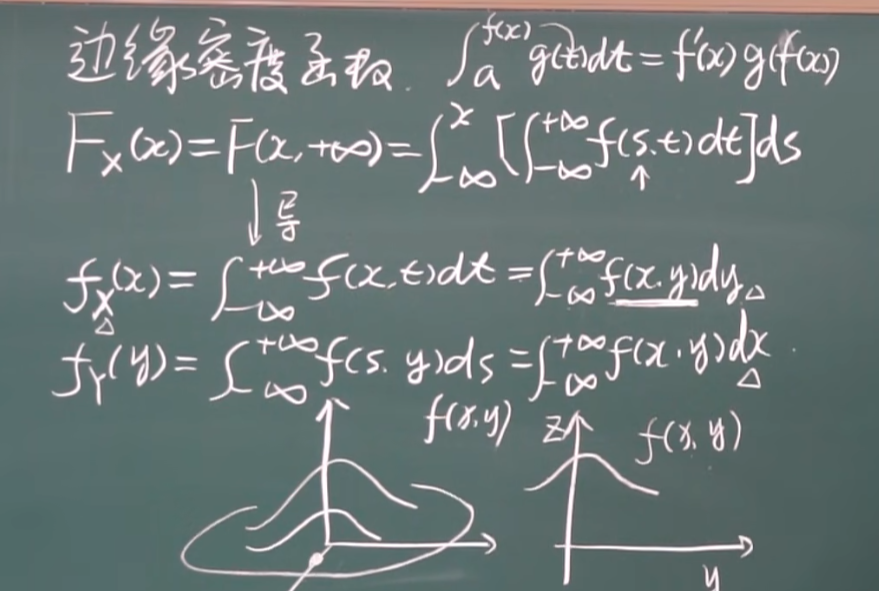 边缘密度函数. ∫_a^{f(x)} g(t)dt = f'(x) g(f(x))
F_X(x) = F(x, +∞) = ∫_{-∞}^{x} [∫_{-∞}^{+∞} f(s.t) dt] ds
↓导 ↑
f_X(x) = ∫_{-∞}^{+∞} f(x,t) dt = ∫_{-∞}^{+∞} f(x.y) dy △
△
f_Y(y) = ∫_{-∞}^{+∞} f(s. y) ds = ∫_{-∞}^{+∞} f(x.y) dx.
△
f(x,y) z f(x, y)
y